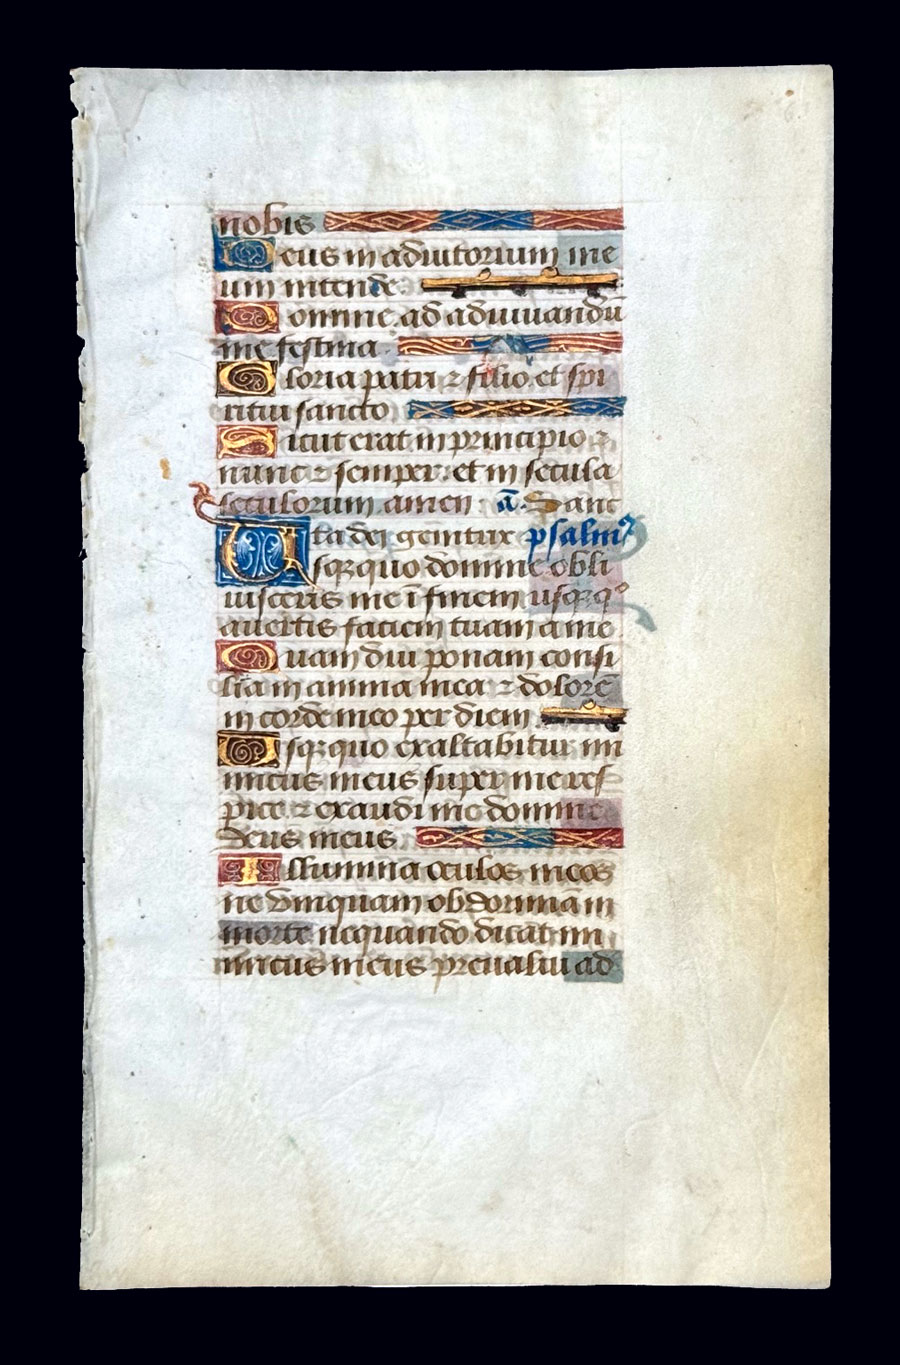 nobis
Deus in adiutorium me
um intende
Domine ad adiuuandū
me festina
Gloria patri ⁊ filio et spi
ritui sancto
Sicut erat in principio ⁊
nunc ⁊ semper et in secula
seculorum amen ā. Sanc
ta dei genitrix psalmꝰ
Usq̨ quo domine obli
uisceris me ī finem usq̨ qᵒ
auertis faciem tuam a me
Quam diu ponam consi
lia in anima mea ⁊ dolorē
in corde meo per diem
Usq̨ quo exaltabitur ini
micus meus super me res
pice ⁊ exaudi me domine
deus meus
Illumina oculos meos
ne vmquam obdormiam in
morte nequando dicat ini
micus meus preualui ad